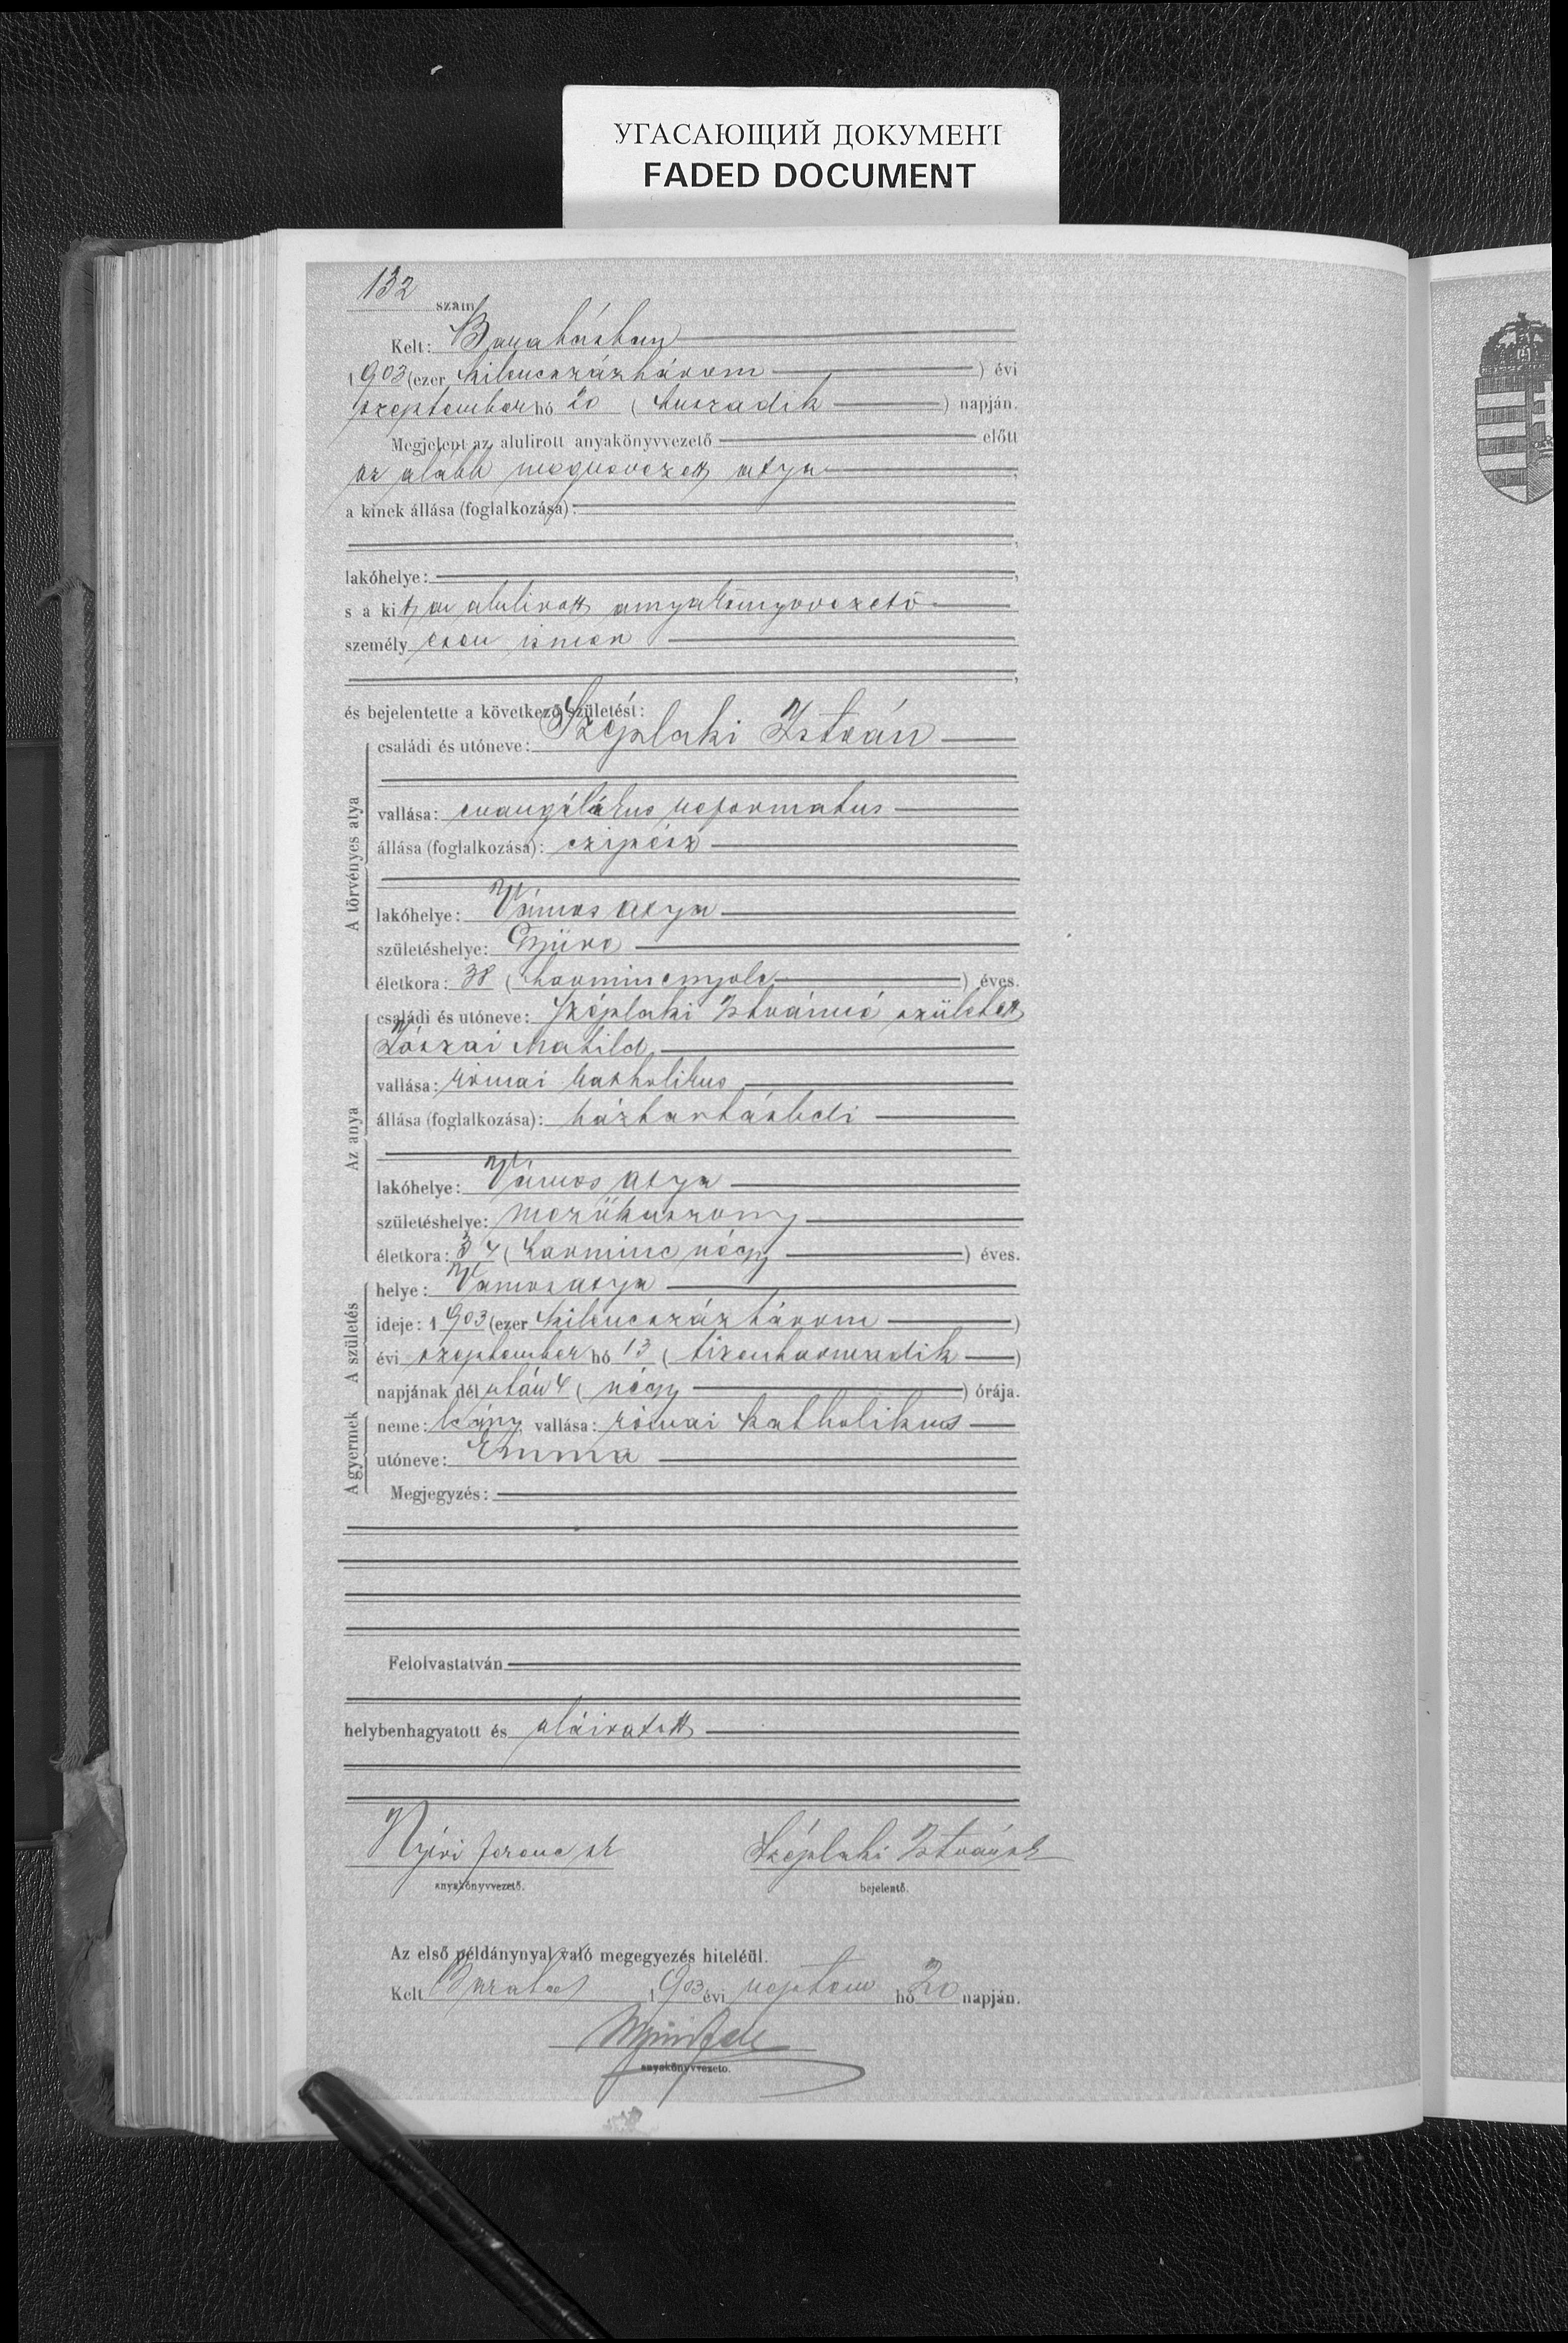 УГАСАЮЩИЙ ДОКУМЕНТ
FADED DOCUMENT
132 szám
Kelt: Barabásban
1903 (ezer kilencszázhárom ) évi
szeptember hó 20 ( huszadik ) napján.
Megjelent az alulirott anyakönyvvezető előtt
az alább megnevezett atya ,
a kinek állása (foglalkozása):
,
lakóhelye: ,
s a kit az alulirott anyakönyvvezető
személyesen ismer
,
és bejelentette a következő születést:
A törvényes atya
családi és utóneve: Széplaki István
vallása: evangélikus reformatus
állása (foglalkozása): czipész
lakóhelye: Vámos atya
születéshelye: Gyüre
életkora: 38 ( harmincnyolc ) éves.
Az anya
családi és utóneve: Széplaki Istvánné született
Matild
vallása: római katholikus
állása (foglalkozása): háztartásbeli
lakóhelye: Vámos atya
születéshelye: Mezőkaszony
életkora: 34 ( harmincnégy ) éves.
A születés
helye: Vámosatya
ideje: 1903 (ezer kilencszázhárom )
évi szeptember hó 13 ( tizenharmadik )
napjának dél után 4 ( négy ) órája.
A gyermek
neme: leány vallása: római katholikus
utóneve: Emma
Megjegyzés:
Felolvastatván
helybenhagyatott és aláiratott
Nyiri Ferenc sk Széplaki István sk
anyakönyvvezető. bejelentő.
Az első példánynyal való megegyezés hiteléül.
Kelt Barabás 1903 évi septem hó 20 napján.
anyakönyvvezető.